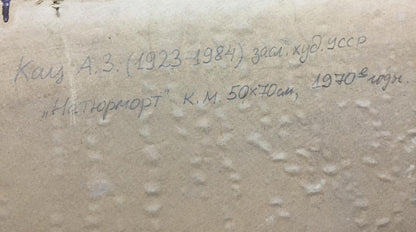 Кац А.З. (1923-1984) засл. худ. УССР
„Натюрморт" к.м. 50х70см, 1970е годы